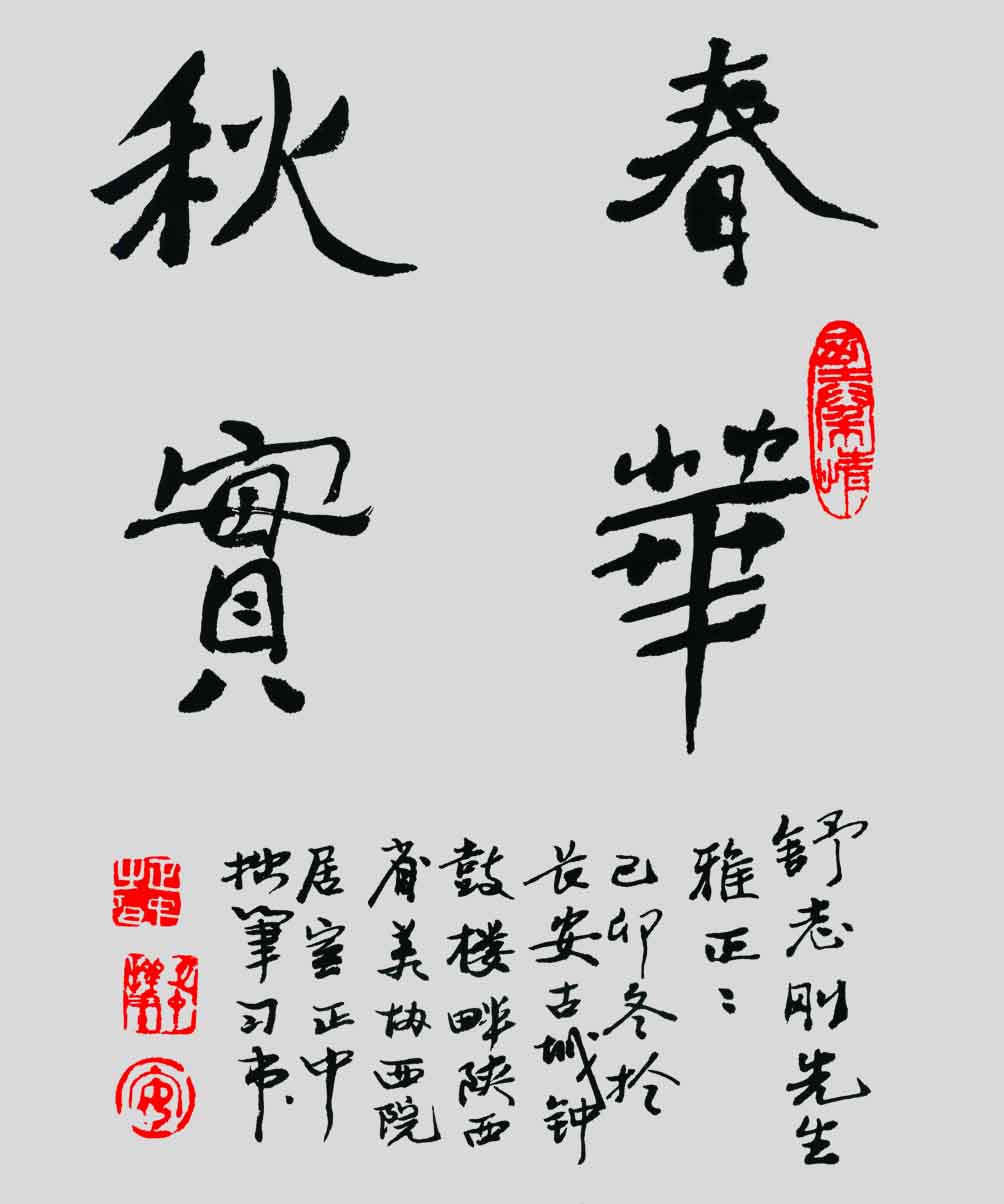 春華
秋實
舒志刚先生
雅正：
己卯冬於
长安古城钟
鼓楼畔陕西
省美协西院
居室正中
拙笔习书、